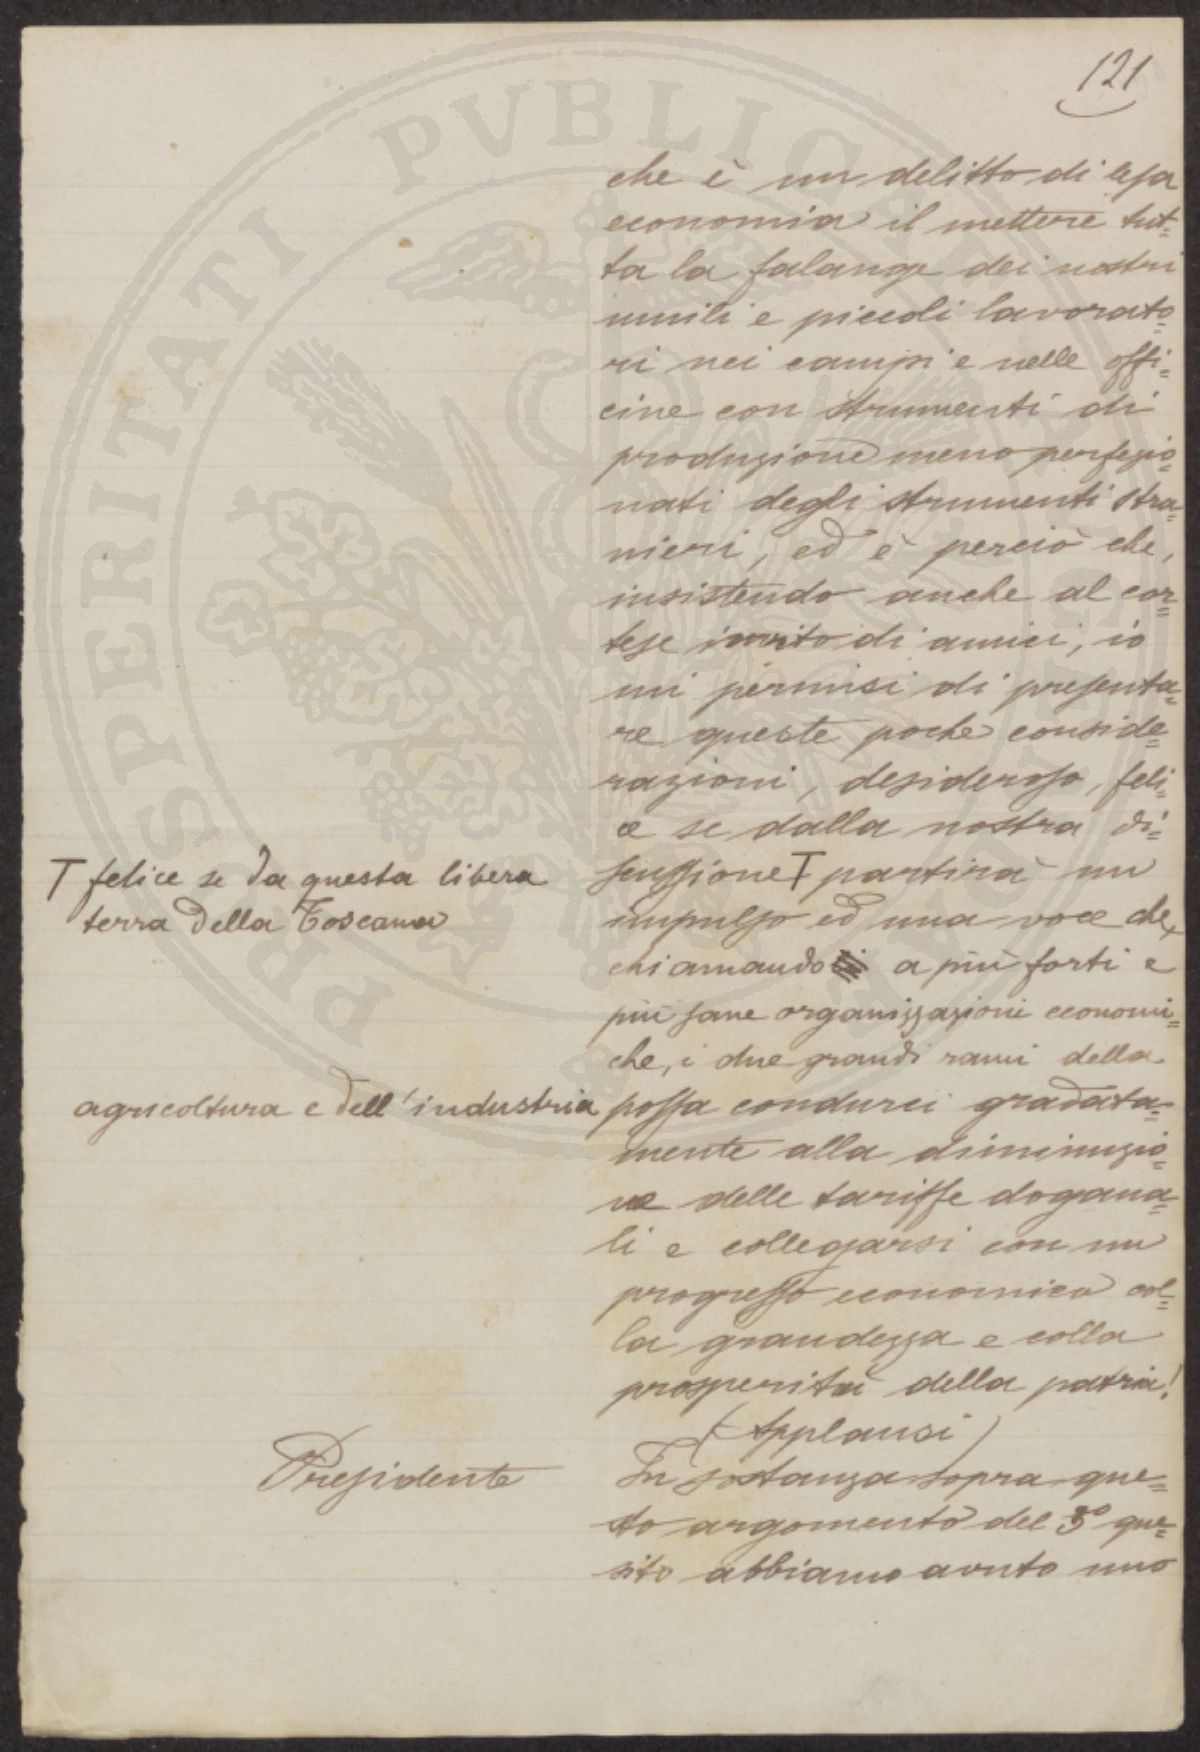 121
che è un delitto di lesa
economia il mettere tut=
ta la falange dei nostri
umili e piccoli lavorato=
ri nei campi e nelle offi=
cine con strumenti di
produzione meno perfezio=
nati degli strumenti stra=
nieri, ed è perciò che,
insistendo anche al cor=
tese invito di amici, io
mi permisi di presenta=
re queste poche conside=
razioni, desideroso, feli=
ce se dalla nostra di=
scussione T partirà un
T felice se da questa libera
terra della Toscana
impulso ed una voce che,
chiamando a più forti e
più sane organizzazioni economi=
che, i due grandi rami della
agricoltura e dell'industria possa condurci gradata=
mente alla diminuzio=
ne delle tariffe dogana=
li e collegarsi con un
progresso economico col=
la grandezza e colla
prosperità della patria!
(Applausi)
Presidente In sostanza sopra que=
sto argomento del 3º que=
sito abbiamo avuto uno
PROSPERITATI PVBLICAE